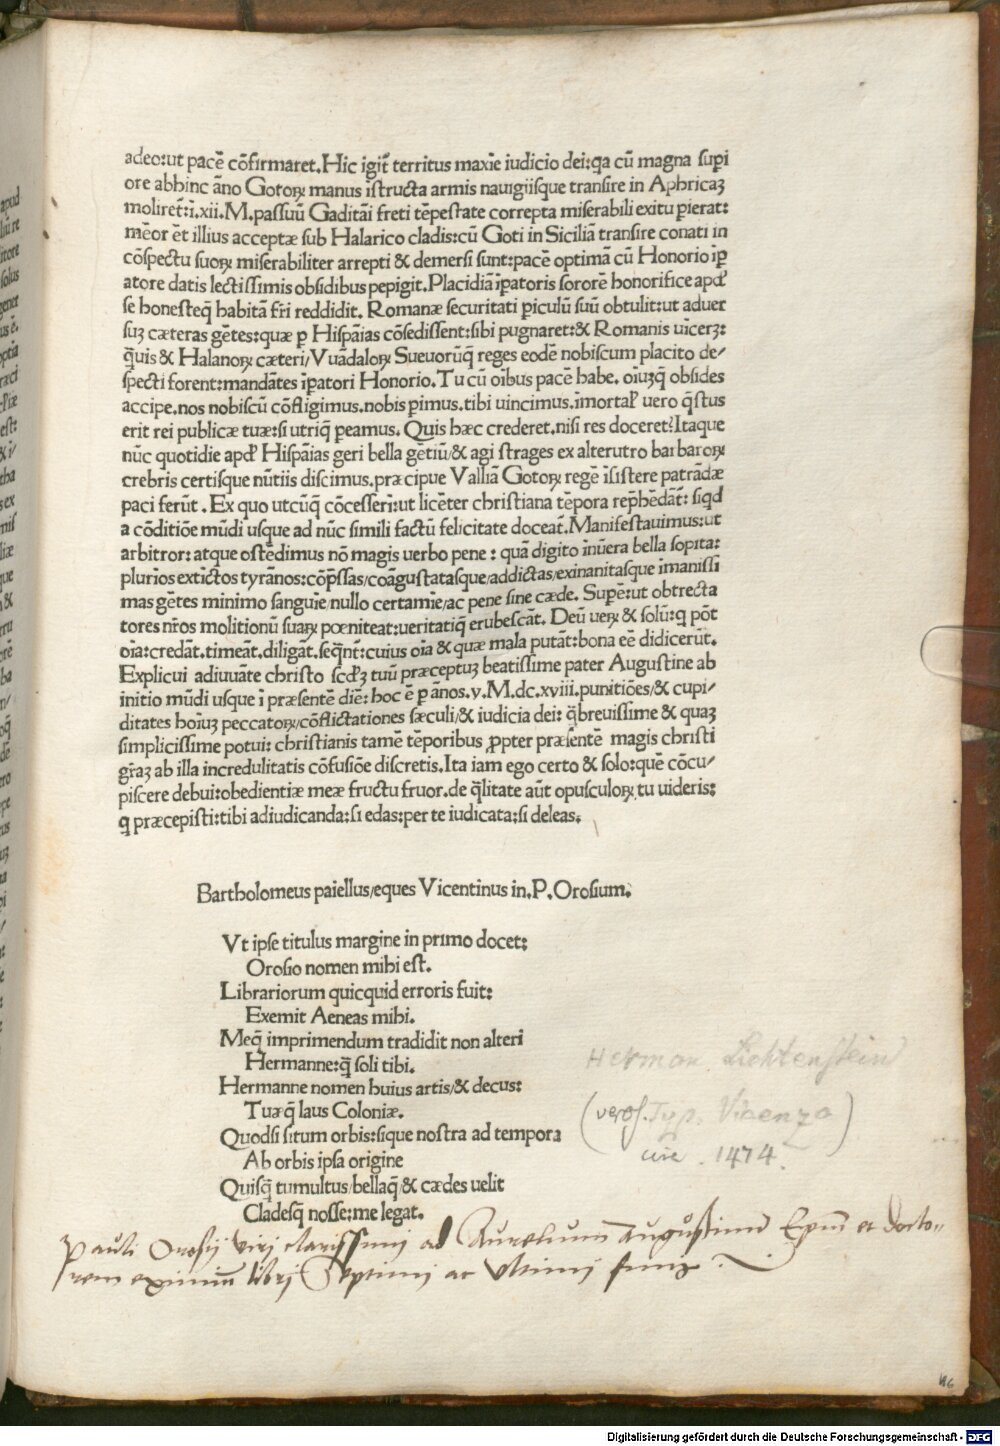 adeo:ut pacē cōfirmaret.Hic igit᷑ territus maxīe iudicio dei:qa cū magna supi
ore abhinc āno Gotoꝝ manus īstructa armis nauigiisque transire in Aphricaꝫ
moliret᷑:ī.xii.M.passuū Gaditāi freti tēpestate correpta miserabili exitu ꝑierat:
mēor ēt illius acceptæ sub Halarico cladis:cū Goti in Siciliā transire conati in
cōspectu suoꝝ miserabiliter arrepti & demersi sunt:pacē optimā cū Honorio īꝑ
atore datis lectissimis obsidibus pepigit.Placidiā īꝑatoris sororē honorifice apď
se honesteq̄ habitā fr̄i reddidit. Romanæ securitati ꝑiculū suū obtulit:ut aduer
suꝫ cæteras gētes:quæ ꝑ Hispāias cōsedissent:sibi pugnaret:& Romanis uīcerꝫ:
q̄uis & Halanoꝝ cæteri/Vuādaloꝝ Sueuorūq̄ reges eodē nobiscum placito de/
specti forent:mandātes īꝑatori Honorio.Tu cū oībus pacē habe. oīuꝫq̄ obsides
accipe.nos nobiscū cōfligimus.nobis ꝑimus.tibi uincimus.īmortaľ uero q̄stus
erit rei publicæ tuæ:si utriq̄ ꝑeamus. Quis hæc crederet.nisi res doceret?Itaque
nūc quotidie apď Hispāias geri bella gētiū/& agi strages ex alterutro barbaroꝝ
crebris certisque nūtiis discimus.præcipue Valliā Gotoꝝ regē īsistere patrādæ
paci ferūt . Ex quo utcūq̄ cōcesseri:ut licēter christiana tēpora rep̄hēdāt᷑: siqd
a cōditiōe mūdi usque ad nūc simili factū felicitate doceat᷑.Manifestauimus:ut
arbitror: atque ostēdimus nō magis uerbo pene : quā digito īnūera bella sopita:
plurīos extīctos tyrānos:cōp̄ssas/coāgustatasque/addictas/exinanitasque īmanissi
mas gētes minimo sanguīe/nullo certamīe/ac pene sine cæde. Supē:ut obtrecta
tores nr̄os molitionū suaꝝ pœniteat:ueritatiq̄ erubescāt. Deū ueꝝ & solū:q pōt
oīa:credāt.timeāt.diligāt.seq̄nt᷑:cuius oīa & quæ mala putāt:bona eē didicerūt.
Explicui adiuuāte christo scďꝫ tuū præceptuꝫ beatissime pater Augustine ab
initio mūdi usque ī præsentē diē: hoc ē ꝑ ānos.v.M.dc.xviii.punitiōes/& cupi/
ditates hoīuꝫ peccatoꝝ/cōflictationes sæculi/& iudicia dei: q̄breuissime & quaꝫ
simplicissime potui: christianis tamē tēporibus ꝓpter præsentē magis christi
gr̄aꝫ ab illa incredulitatis cōfusiōe discretis.Ita iam ego certo & solo:quē cōcu/
piscere debui:obedientiæ meæ fructu fruor.de q̄litate aūt opusculoꝝ tu uideris:
q præcepisti:tibi adiudicanda:si edas:per te iudicata:si deleas.
Bartholomeus paiellus/eques Vicentinus in.P.Orosium.
Vt ipse titulus margine in primo docet:
Orosio nomen mihi est.
Librariorum quicquid erroris fuit:
Exemit Aeneas mihi.
Meq̄ imprimendum tradidit non alteri
Hermanne:q̄ soli tibi.
Hermanne nomen huius artis/& decus:
Tuæq̄ laus Coloniæ.
Quodsi situm orbis:sique nostra ad tempora
Ab orbis ipsa origine
Quisq̄ tumultus/bellaq̄/& cædes uelit
Cladesq̄ nosse:me legat.
Herman Lichtenstein
Typ. Vicenza)
1474.
Pauli Orosij virj clarissimj ad Aurelium Augustinū Ep̄m et docto-
rem eximium librj Septimj ac vltimj finis.
Digitalisierung gefördert durch die Deutsche Forschungsgemeinschaft - DFG